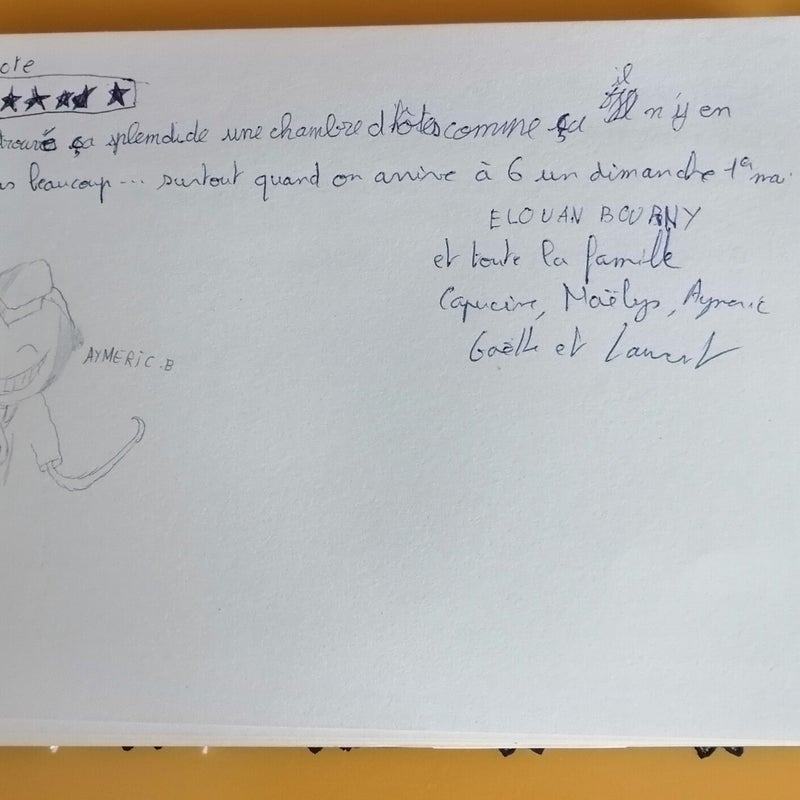 ote
trouvé ça splendide une chambre d'hôtes comme ça il n'y en
as beaucoup... surtout quand on arrive à 6 un dimanche 1er ma
ELOUAN BOURNY
et toute la famille
Capucine, Maëlys, Aymeric
Gaëlle et Laurent
AYMERIC.B